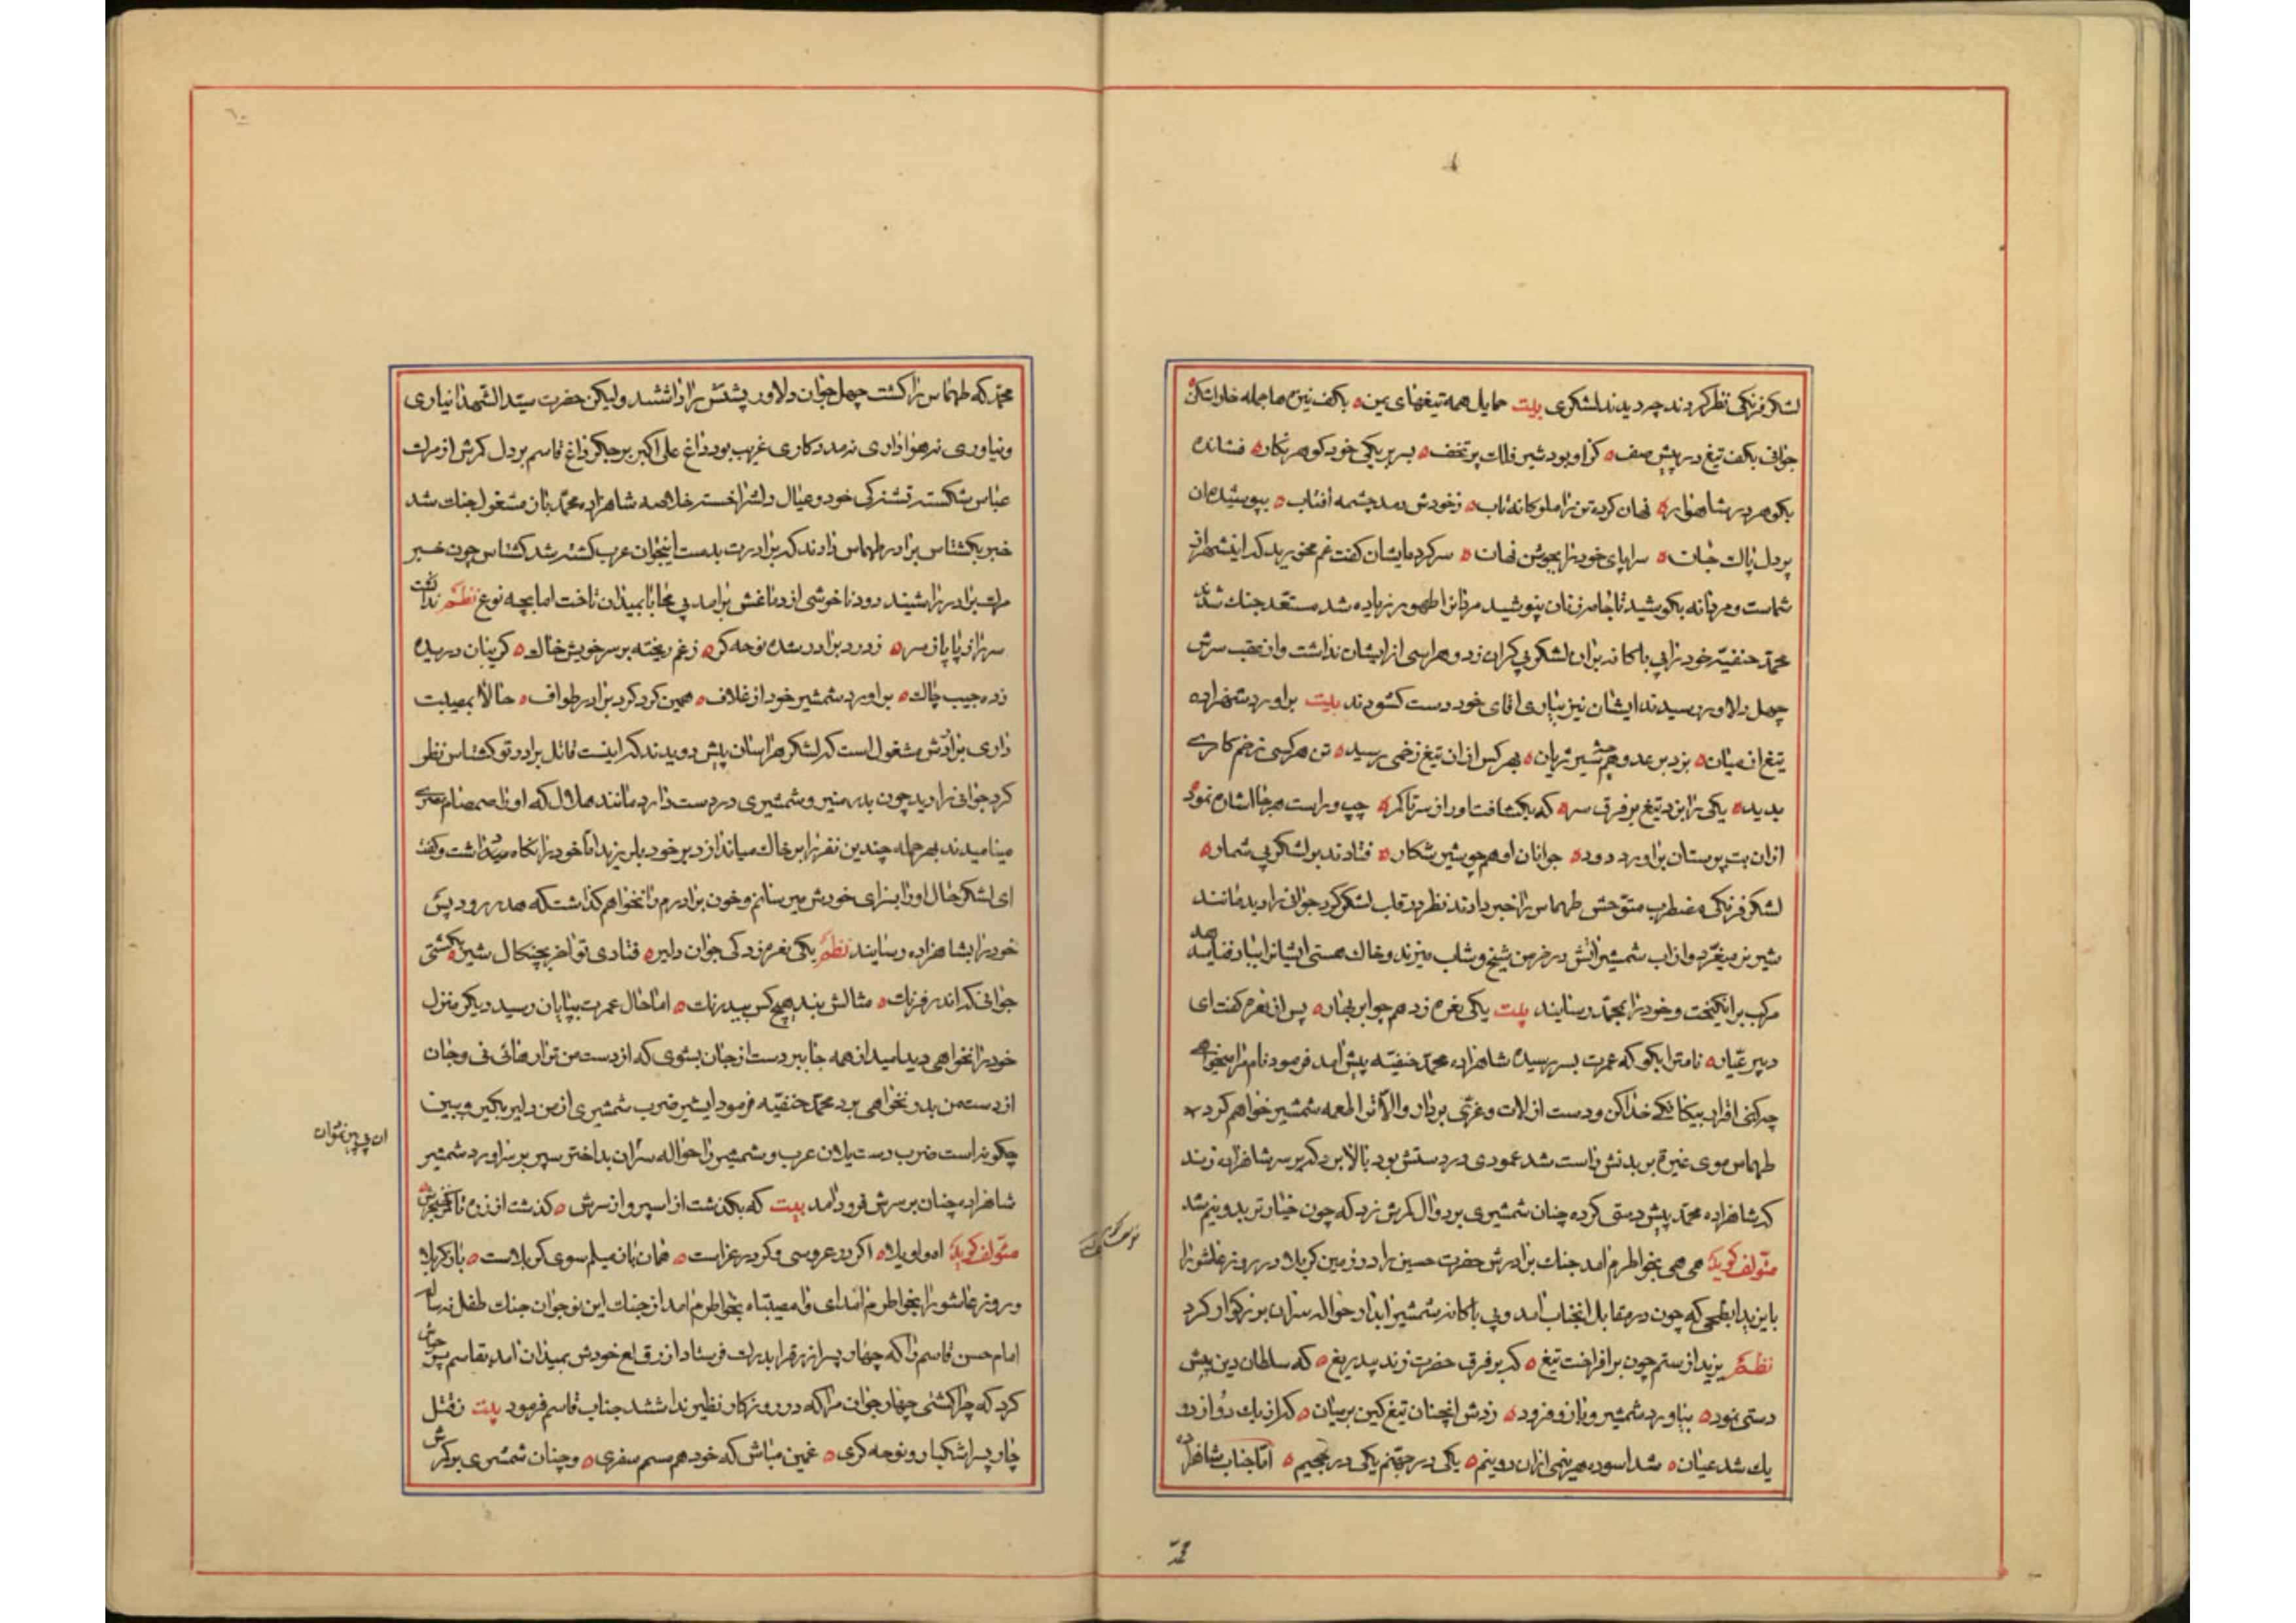 لشکر فرنکی نظر کردند چه دیدند لشکری بیت حمایل همه تیغهای یمن بکف نیزه‌ها جمله خارا شکن
جوانی بکف تیغ در پیش صف کز او بود شیر فلک پر تخف بسر بر یکی خود کوهر نکار فشانده
بکوهر در شاهوار نهان کرده تن را ملوکانه تاب ز خودش دمد چشمه افتاب بپوشیده ان
پر دل پاک جان سراپای خود را بجوشن نهان سرکرده ایشان کفت غم مخورید که این شهر از
شماست و مردانه بکوشید تا جامه زنان نپوشید مردانرا طهور زیاده شد مستعد جنک شدند
محمد حنفیه خود را بی باکانه بران لشکر بی کران زد و هراسی از ایشان نداشت و از عقب سرش
چهل دلاور رسیدند ایشان نیز بیاری اقای خود دست کشودند بیت براورد شهزاده
تیغ از میان بزد بر عدو همچو شیر ژیان بهر کس از ان تیغ زخمی رسید تن هر کسی زخم کاری
بدید یکی را بزد تیغ بر فرق سر که بشکافت او را ز سر تا کمر چپ و راست هر جا اشاره نمود
از ان بت پرستان براورد دود جوانان او همچو شیر شکار فتادند بر لشکر بی شمار
لشکر فرنکی مضطرب متوحش طهماس را خبر دادند نظر در قلب لشکر کرد جوانی را دید مانند
شیر نر میغرد و از اب شمشیر اتش در خرمن شیخ و شاب میزند و خاک هستی ایشانرا بباد فنا میدهد
مرکب برانکیخت و خود را بمحمد رسانید بیت یکی نعره زد همچو ابر بهار پس از نعره کفت ای
دبیر عیار نامترا بکو که عمرت بسر رسیده شاهزاده محمد حنفیه پیش امد فرمود نام مرا میخواهی
چه کنی اقرار بیکانکی خدا کن و دست از لات و عزی بردار والا ترا طعمه شمشیر خواهم کرد
طهماس موی غیرة بر بدنش راست شد عمودی در دستش بود بالا برد که بر سر شاهزاده زند
که شاهزاده محمد پیش دستی کرده چنان شمشیری بر دوال کمرش زد که چون خیار تر بدو نیم شد
مؤلف کوید هی هی بخواطرم امد جنک برادرش حضرت حسین را در زمین کربلا در روز عاشورا
با یزید ابطحی که چون در مقابل انجناب امد و بی باکانه شمشیر ابدار حواله سر ان بزرکوار کرد
نظم یزید از ستم چون برافراخت تیغ که بر فرق حضرت زند بیدریغ که سلطان دین پیش
دستی نمود بیاورد شمشیر و بازو فزود زدش انچنان تیغ کین بر میان که از یک دو از دو
یک شد عیان شد اسوده هر نیمی از ان دو نیم یکی در جهنم یکی در جحیم اما جناب شاهزاده
محمد
محمد که طهماس را کشت چهل جوان دلاور پشتش را داشتند ولیکن حضرت سید الشهدا نه یاری
و نه یاوری نه هواداری نه مددکاری غریب بود داغ علی اکبر بر جکر داغ قاسم بر دل کمرش از مرک
عباس شکسته تشنکی خود و عیال دلشرا خسته خلاصه شاهزاده محمد بان مشغول جنک شد
خبر بکشتاس برادر طهماس دادند که برادرت بدست اینجوان عرب کشته شد کشتاس چون خبر
مرک برادر را شنید دود ناخوشی از دماغش برامد بی محابا بمیدان تاخت اما بچه نوع نظم ندانست
سر از پا پا از سر ز درد برادر شده نوحه کر ز غم ریخته بر سر خویش خاک کریبان دریده
زده جیب چاک براورد شمشیر خود از غلاف همین کرد کرد برادر طواف حالا بمصیبت
داری برادرش مشغول است که لشکر هراسان پیش دویدند که اینست قاتل برادر تو کشتاس نظر
کرد جوانی را دید چون بدر منیر و شمشیری در دست دارد مانند هلال که او را صمصام مصری
مینامیدند بهر حمله چندین نفر را بر خاک میاندازد بر خود بلرزید اما خود را نکاه میداشت و کفت
ای لشکر حال او را بسزای خودش میرسانم و خون برادرم را نخواهم کذاشت که هدر رود پس
خود را بشاهزاده رسانید نظم یکی نعره زد کی جوان دلیر فتادی تو اخر بچنکال شیر بکشتی
جوانی که اندر فرنک مثالش نبد هیچ کس بیدرنک اما حال عمرت بپایان رسید دیکر منزل
خود را نخواهی دید امید از همه جا ببر دست از جان بشوی که از دست من ترا رهائی نی و جان
از دست من بدر نخواهی برد محمد حنفیه فرمود ایشیر ضرب شمشیری از من دلیر بکیر و ببین
چکونه است ضرب دست یلان عرب و شمشیر را حواله سر ان بداختر سپر بر سر اورد شمشیر
شاهزاده چنان بر سرش فرود امد بیت که بکذشت از اسپر و از سرش کذشت از زره تا کمر خنجرش
مؤلف کوید اه واویلا اکر در عروسی وکر در عزاست همان بان میلم سوی کربلاست باز کربلا
و روز عاشورا بخواطرم امد ای وا مصیبتاه بخواطرم امد از جنک این نوجوان جنک طفل نه ساله
امام حسن قاسم را که چهار پسر ازرق را بدرک فرستاد ازرق لع خودش بمیدان امد بقاسم پرخواش
کرد که چرا کشتی چهار جوان مرا که در روزکار نظیر نداشتند جناب قاسم فرمود بیت ز قتل
چار پسر اشکبار و نوحه کری غمین مباش که خود هم سفری و چنان شمشیری بر کمرش